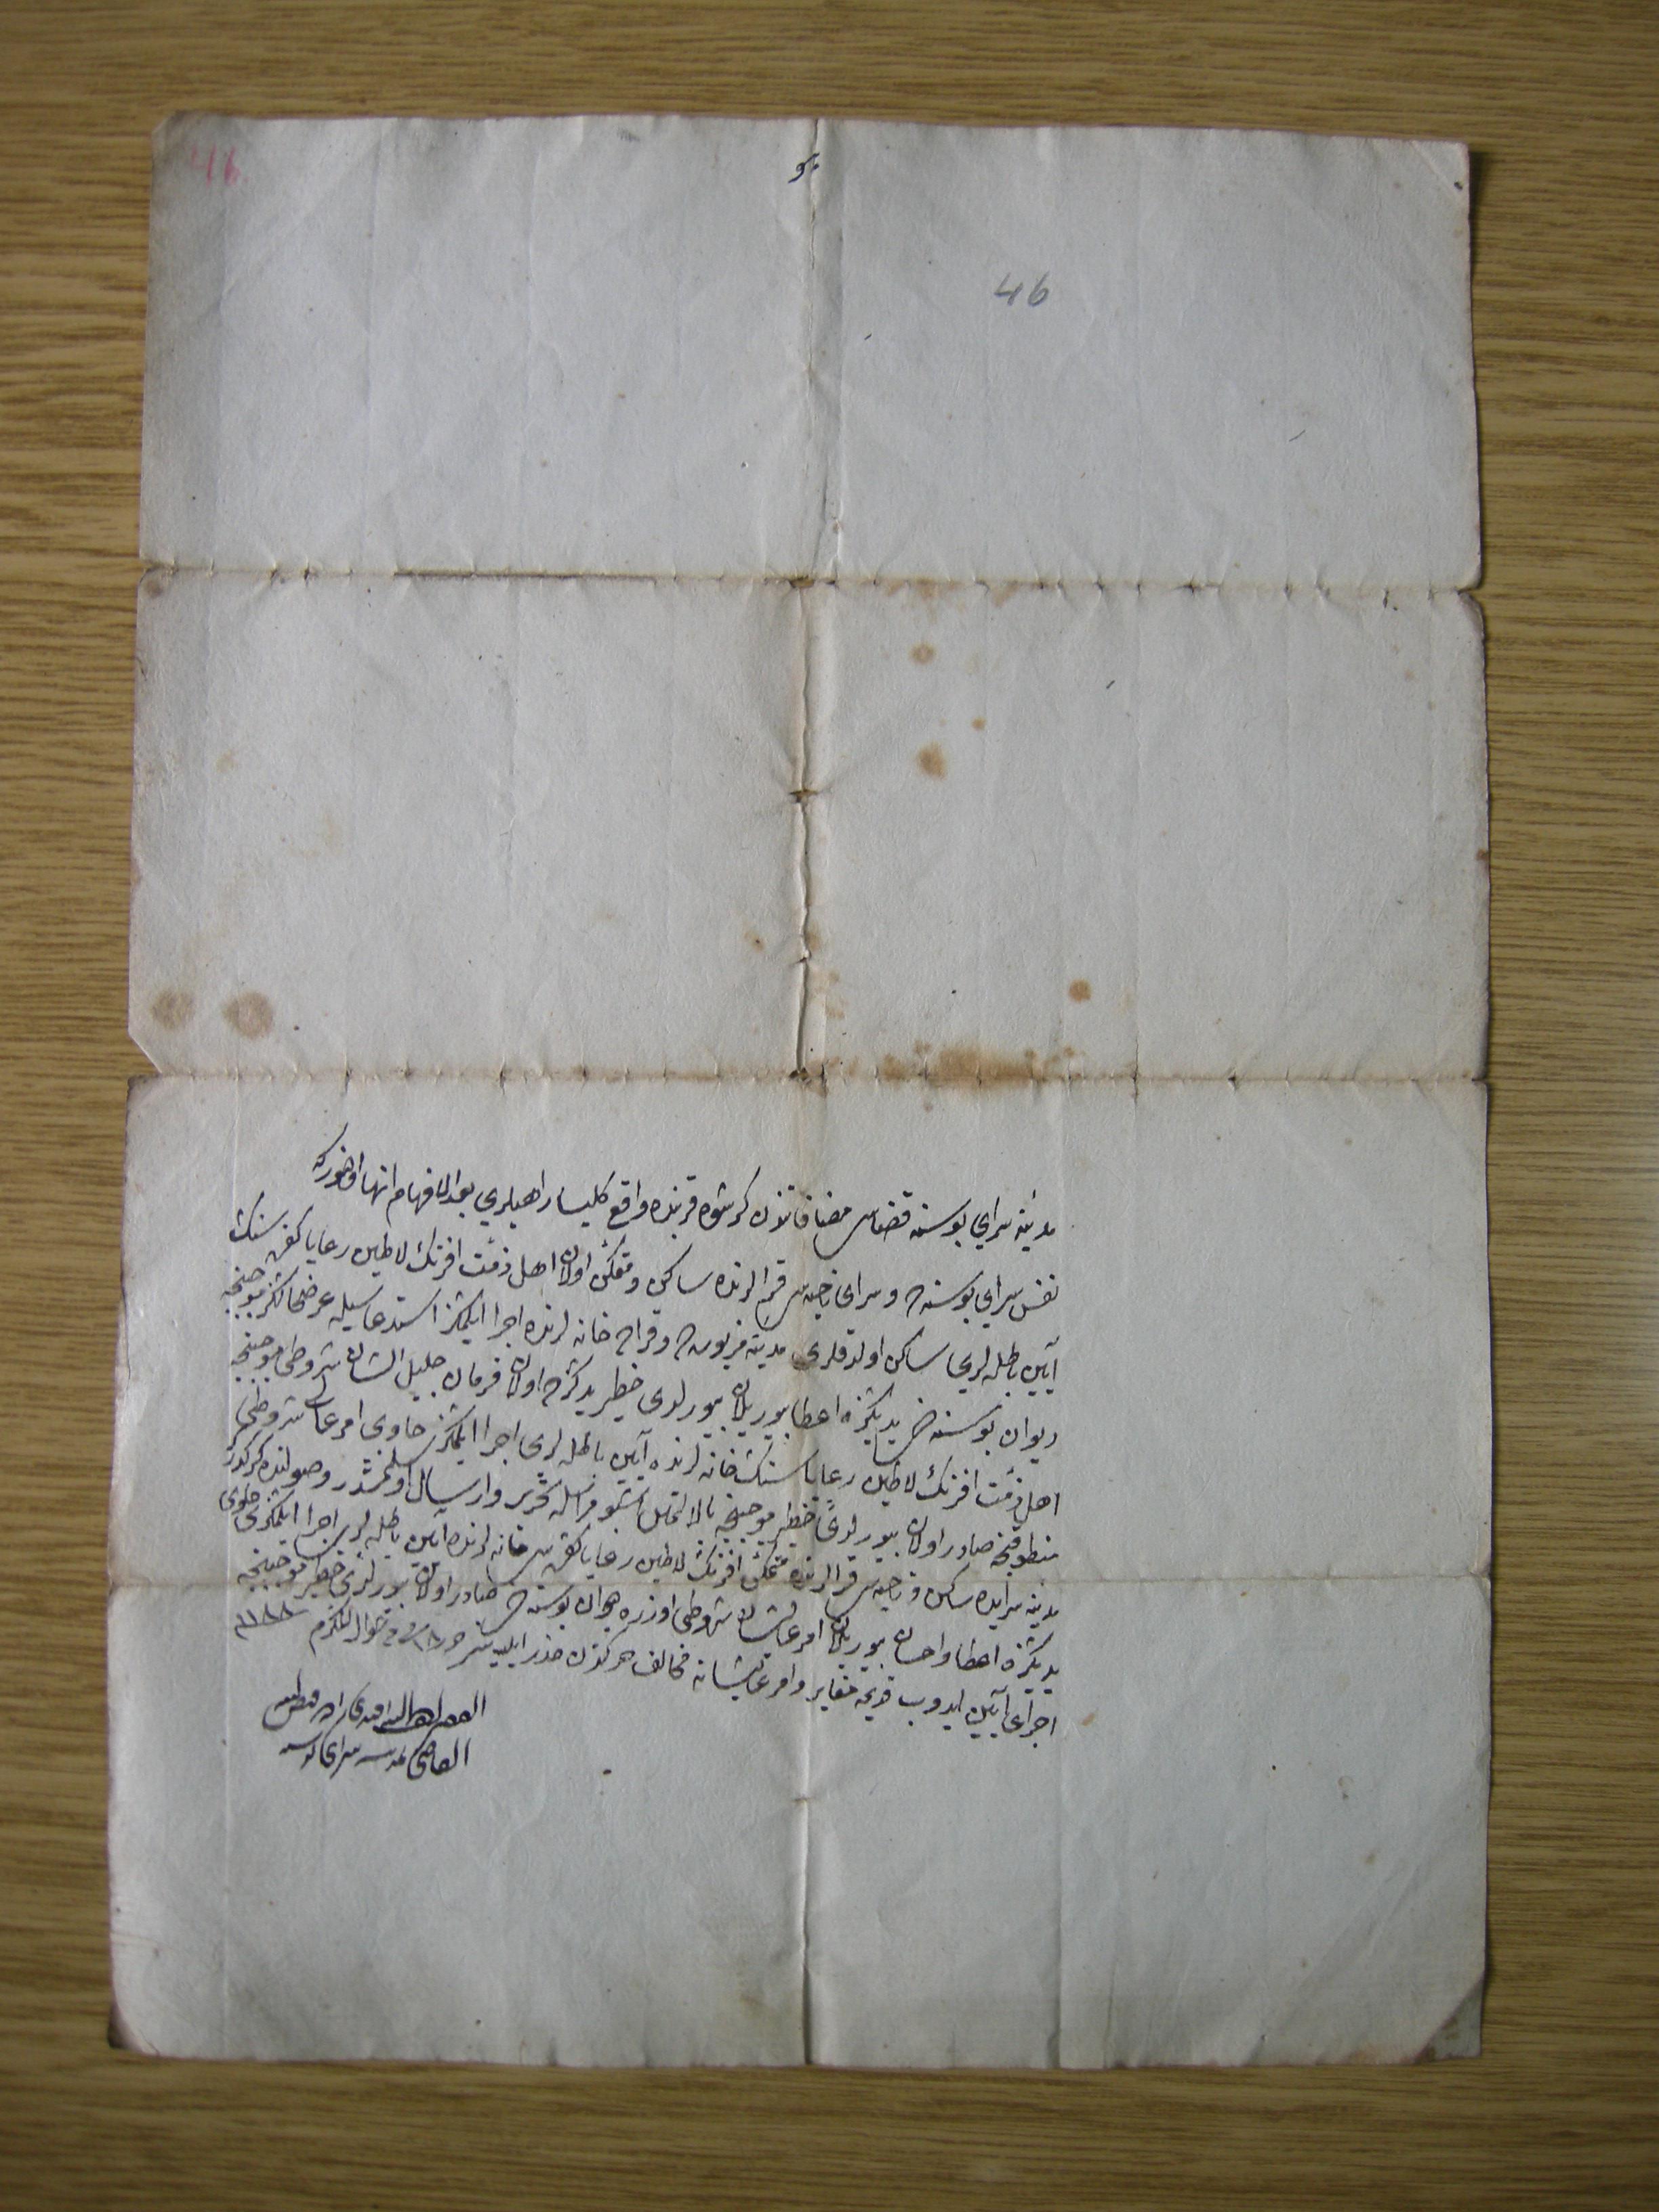 هو
46
46
مدینه سرای بوسنه قضاسی مضافاتندن کرشوه قریه‌سنده واقع کلیسا راهبلری بعد الافهام انها اولنور که
نفس سرای بوسنه‌ده و سرای ناحیه‌سی قرالرنده ساکن و متمکن اولان اهل ذمت افرنک لاطین رعایا کفره‌سنک
آیین باطله‌لری ساکن اولدقلری مدینه مزبوره‌ده و قراده خانه‌لرنده اجرا ایلمکز استدعاسیله عرضحالکز موجبنجه
دیوان بوسنه‌دن یدیکزه اعطا بیوریلان بیورلدی خطیر یدکزده اولان فرمان جلیل الشان شروطی موجبنجه
اهل ذمت افرنک لاطین رعایاسنک خانه‌لرنده آیین باطله‌لری اجرا ایلمکز حاوی امر عالی شروطی
منطوقنجه صادر اولان بیورلدی خطیر موجبنجه بالامتثال اشبو مراسله تحریر و ارسال اولنمشدر وصولنده کرکدر
مدینه سرایده ساکن و ناحیه‌سی قرالرنده متمکن افرنک لاطین رعایا کفره‌سی خانه‌لرنده آیین باطله‌لرین اجرا ایلمکزی حاوی
یدیکزه اعطا و احسان بیوریلان امر عالیشان شروطی اوزره دیوان بوسنه‌دن صادر اولان بیورلدی خطیر موجبنجه
اجرای آیین ایدوب قدیمه مغایر و امر عالیشانه مخالف حرکتدن حذر ایلیه‌سز فی شوال المکرم ١١٨٨
القاضی بمدینه سرای بوسنه